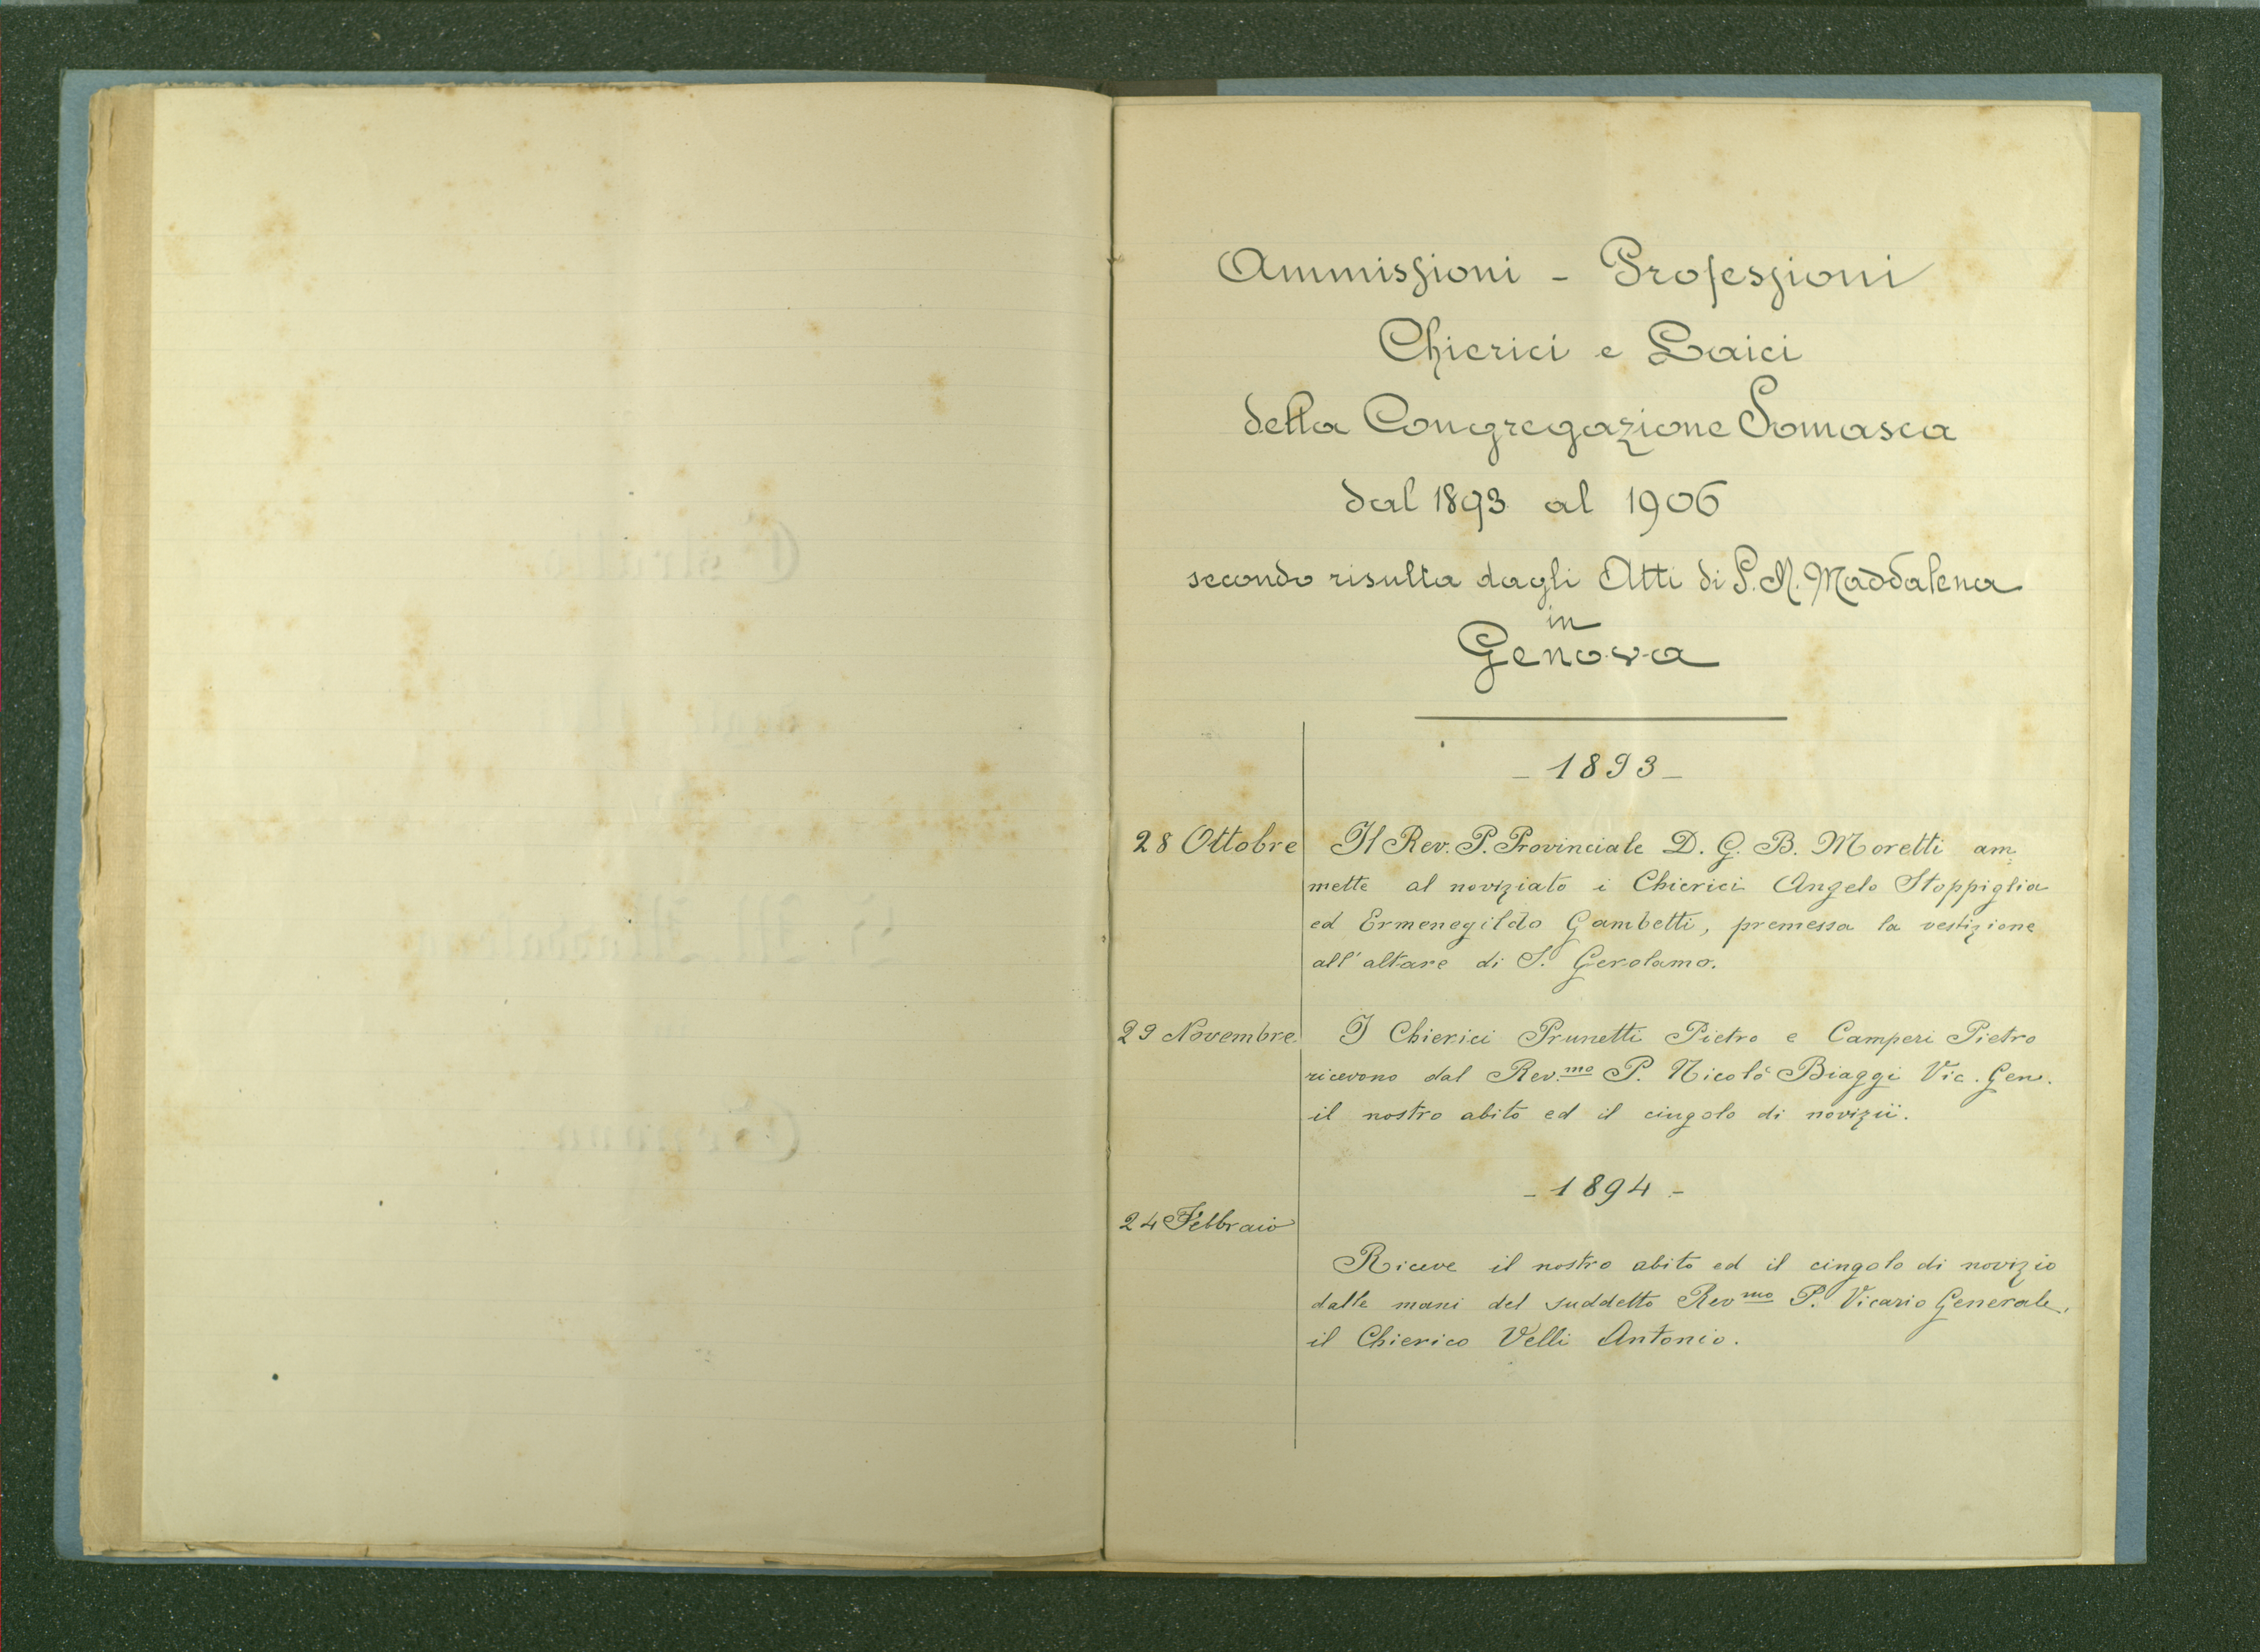 Ammissioni - Professioni
Chierici e Laici
della Congregazione Somasca
dal 1893 al 1906
secondo risulta dagli Atti di S. M. Maddalena
in
Genova
- 1893 -
28 Ottobre Il Rev. P. Provinciale D. G. B. Moretti am
mette al noviziato i Chierici Angelo Stoppiglia
ed Ermenegildo Gambetti, premessa la vestizione
all'altare di S. Gerolamo.
29 Novembre I Chierici Prunetti Pietro e Camperi Pietro
ricevono dal Rev.mo P. Nicolò Biaggi Vic. Gen.
il nostro abito ed il cingolo di novizii.
- 1894 -
24 Febbraio
Riceve il nostro abito ed il cingolo di novizio
dalle mani del suddetto Rev mo P. Vicario Generale,
il Chierico Velli Antonio.